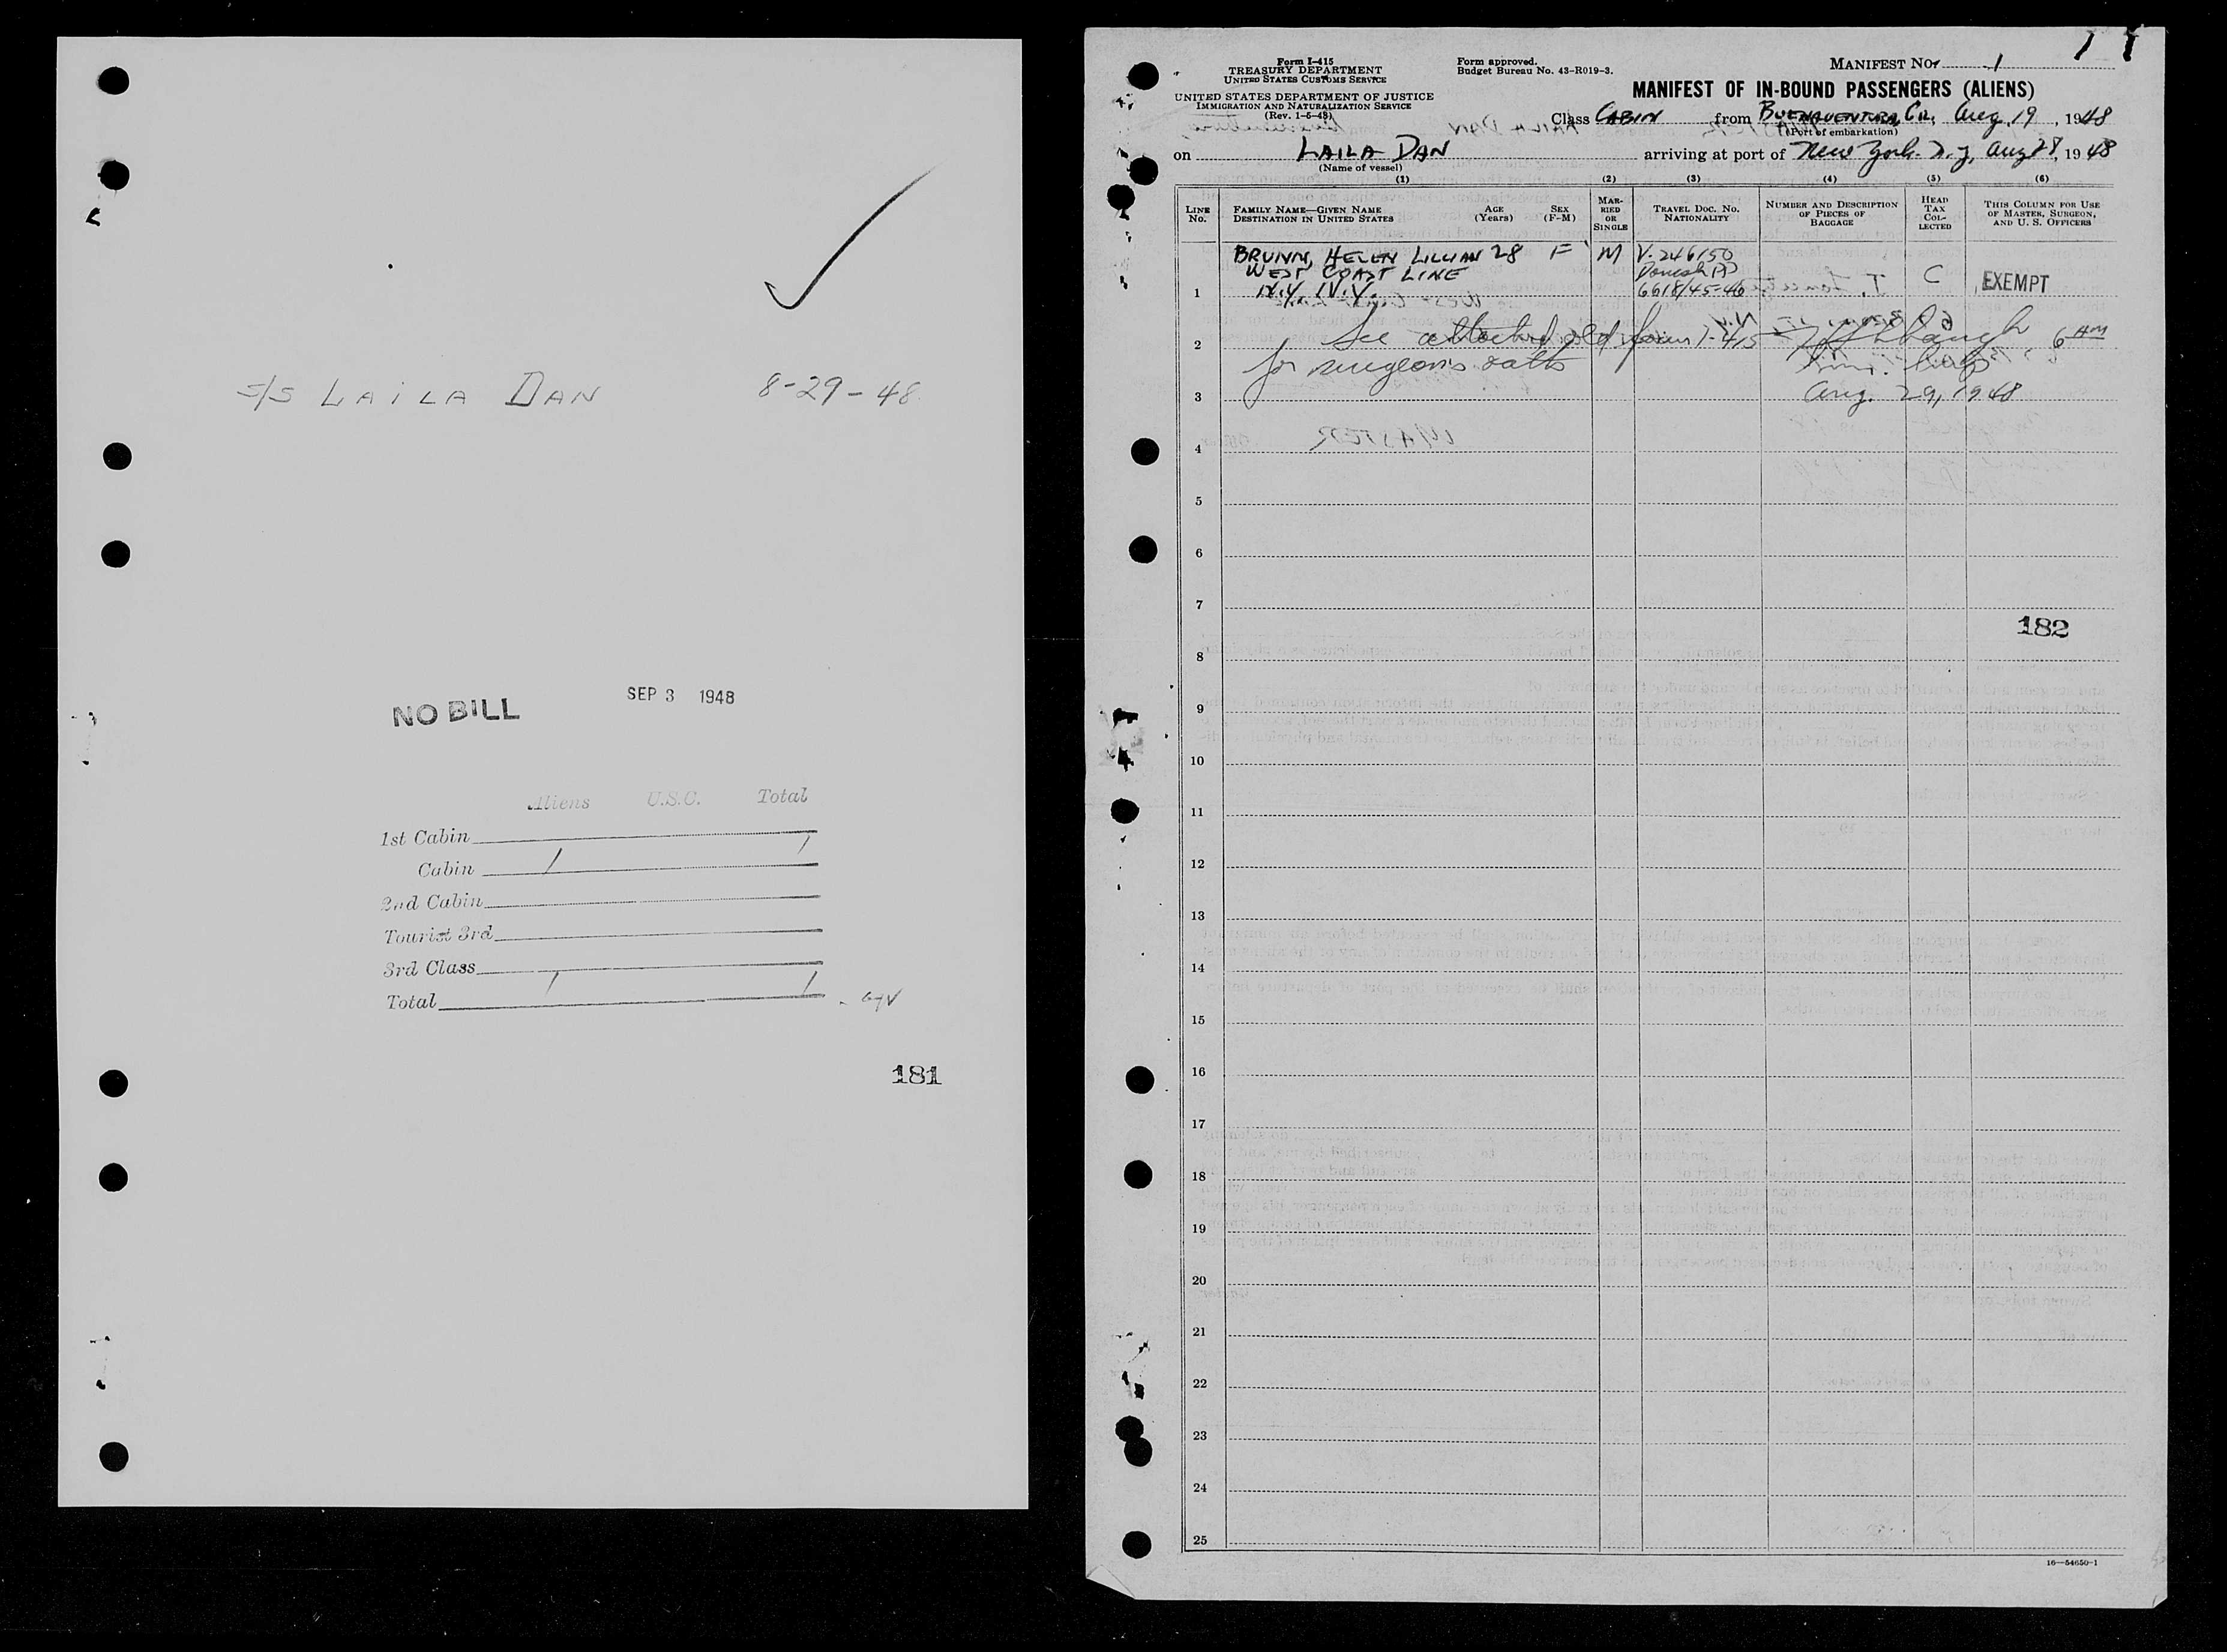 S/S LAILA DAN 8-29-48
NO BILL SEP 3 1948
Aliens U.S.C. Total
1st Cabin
Cabin 1 1
2nd Cabin
Tourist 3rd
3rd Class
Total 1 1
181
Form I-415
TREASURY DEPARTMENT
UNITED STATES CUSTOMS SERVICE
UNITED STATES DEPARTMENT OF JUSTICE
IMMIGRATION AND NATURALIZATION SERVICE
(Rev. 1-6-48)
Form approved.
Budget Bureau No. 43-R019-3.
MANIFEST NO. 1
MANIFEST OF IN-BOUND PASSENGERS (ALIENS)
Class CABIN from BUENAVENTURA, Aug. 19, 1948
(Port of embarkation)
on LAILA DAN arriving at port of New York N.Y. Aug 28, 1948
(Name of vessel)
(1) (2) (3) (4) (5) (6)
LINE NO.
FAMILY NAME—GIVEN NAME
DESTINATION IN UNITED STATES
AGE (Years)
SEX (F-M)
MARRIED OR SINGLE
TRAVEL DOC. NO.
NATIONALITY
NUMBER AND DESCRIPTION
OF PIECES OF
BAGGAGE
HEAD TAX COLLECTED
THIS COLUMN FOR USE
OF MASTER, SURGEON,
AND U. S. OFFICERS
BRUNN, HELEN LILLIAN 28 F M V.246150
WEST COAST LINE Danish PP
1 N.Y. N.Y. 6618/45-46 C EXEMPT
2 See attached old form I-415 6 AM
for surgeon's oath
3 Aug. 29, 1948
4
5
6
7
182
8
9
10
11
12
13
14
15
16
17
18
19
20
21
22
23
24
25
16—54650-1